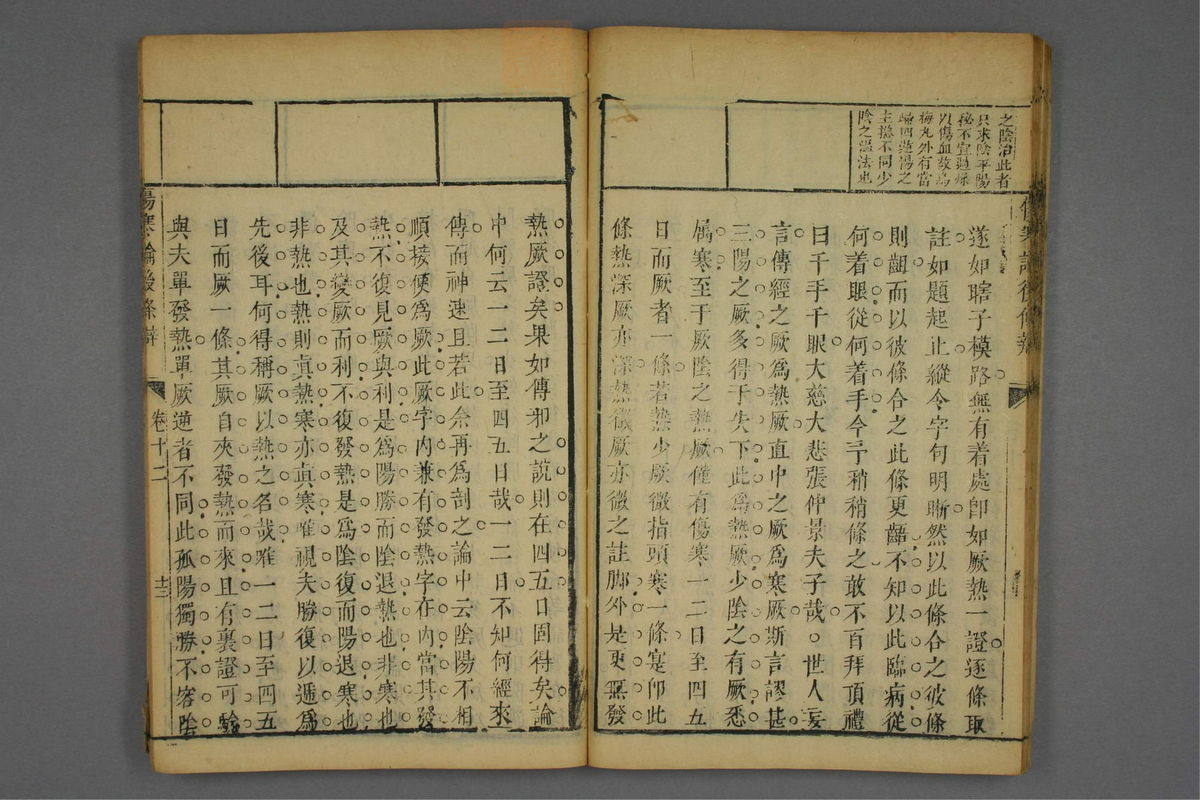 之陰治此者
只求陰平陽
秘不宜過燥
以傷血故烏
梅丸外有當
歸四逆湯之
主總不同少
陰之溫法也
遂如瞎子模路無有着處卽如厥熱一證逐條取
註如題起止縱令字句明晰然以此條合之彼條
則齟而以彼條合之此條更齬不知以此臨病從
何着眼從何着手今予稍稍條之敢不百拜頂禮
曰千手千眼大慈大悲張仲景夫子哉世人妄
言傳經之厥爲熱厥直中之厥爲寒厥斯言謬甚
三陽之厥多得于失下此爲熱厥少陰之有厥悉
属寒至于厥陰之熱厥僅有傷寒一二日至四五
日而厥者一條若熱少厥微指頭寒一條寔卽此
條熱深厥亦深熱微厥亦微之註脚外是更無發
熱厥證矣果如傳邪之說則在四五日固得矣論
中何云一二日至四五日哉一二日不知何經來
傳而神速且若此余再爲剖之論中云陰陽不相
順接便爲厥此厥字内兼有發熱字在内當其發
熱不復見厥與利是爲陽勝而陰退熱也非寒也
及其變厥而利不復發熱是爲陰復而陽退寒也
非熱也熱則真熱寒亦真寒唯視夫勝復以遞爲
先後耳何得稱厥以熱之名哉唯一二日至四五
日而厥一條其厥自夾發熱而來且有裏證可驗
與夫單發熱單厥逆者不同此孤陽獨勝不容陰
傷寒論後條辯
卷十二
十三